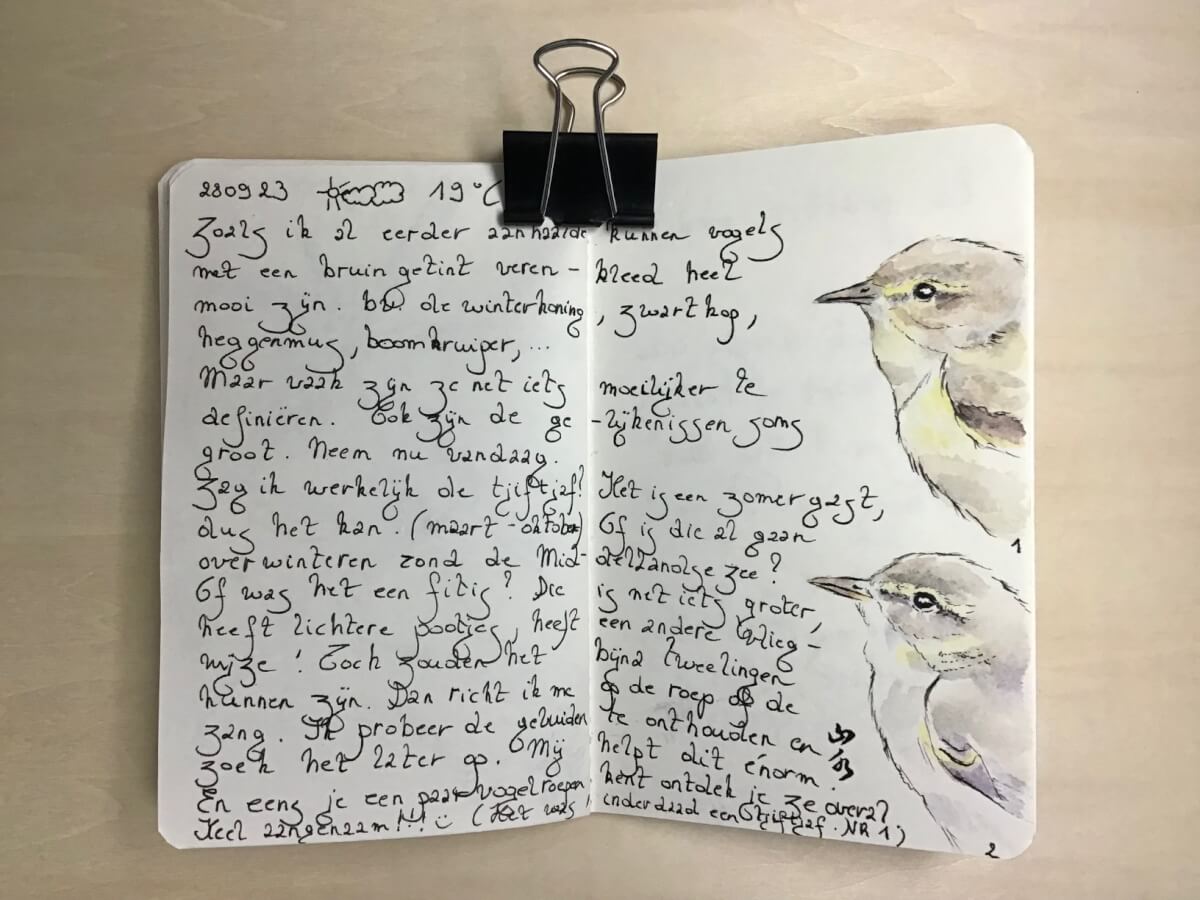 280923 19°C
Zoals ik al eerder aanhaalde kunnen vogels
met een bruin getint veren- kleed heel
mooi zijn. bv de winterkoning, zwartkop,
heggenmus, boomkruiper, ...
Maar vaak zijn ze net iets moeilijker te
definiëren. Ook zijn de ge -lijkenissen soms
groot. Neem nu vandaag.
Zag ik werkelijk de tjiftjaf? Het is een zomergast,
dus het kan. (maart-oktober) Of is die al gaan
overwinteren rond de Mid- dellandse zee?
Of was het een fitis? Die is net iets groter,
heeft lichtere pootjes, heeft een andere vlieg-
wijze! Toch zouden het bijna tweelingen
kunnen zijn. Dan richt ik me op de roep of de
zang. Ik probeer de geluiden te onthouden en
zoek het later op. Mij helpt dit énorm.
En eens je een paar vogelroepen kent ontdek je ze overal
Heel aangenaam!!! (Het was inderdaad een tjiftjaf. NR 1)
1
2